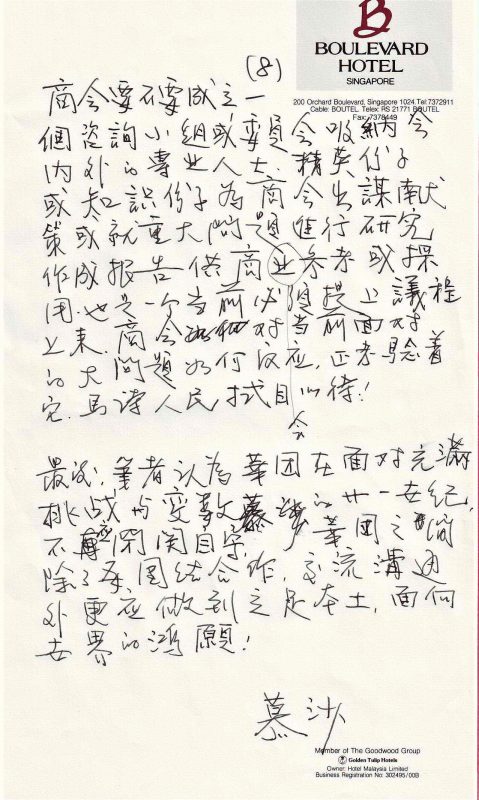 B
BOULEVARD
HOTEL
SINGAPORE
200 Orchard Boulevard, Singapore 1024.Tel:7372911
Cable: BOUTEL. Telex: RS 21771 BOUTEL
Fax: 7378449
(8)
商会要不要成立一
個咨詢小组或委員会吸納会
内外的專业人士、精英份子
或知識份子為商会出謀献
策或就重大問題進行研究
作成报告供商会参考或採
用.也是一个当前必須提上議程
上来.商会如何对当前面对
的大問題如何反应.正考驗着
它.馬詩人民拭目以待!
最後,筆者认為華团在面对充滿
挑战与变数的廿一世纪,
不應闭関自守,華团之间
除了要团结合作,交流溝通
外更应做到立足本土,面向
世界的鴻願!
慕沙
Member of The Goodwood Group
Golden Tulip Hotels
Owner: Hotel Malaysia Limited
Business Registration No: 302495/00B